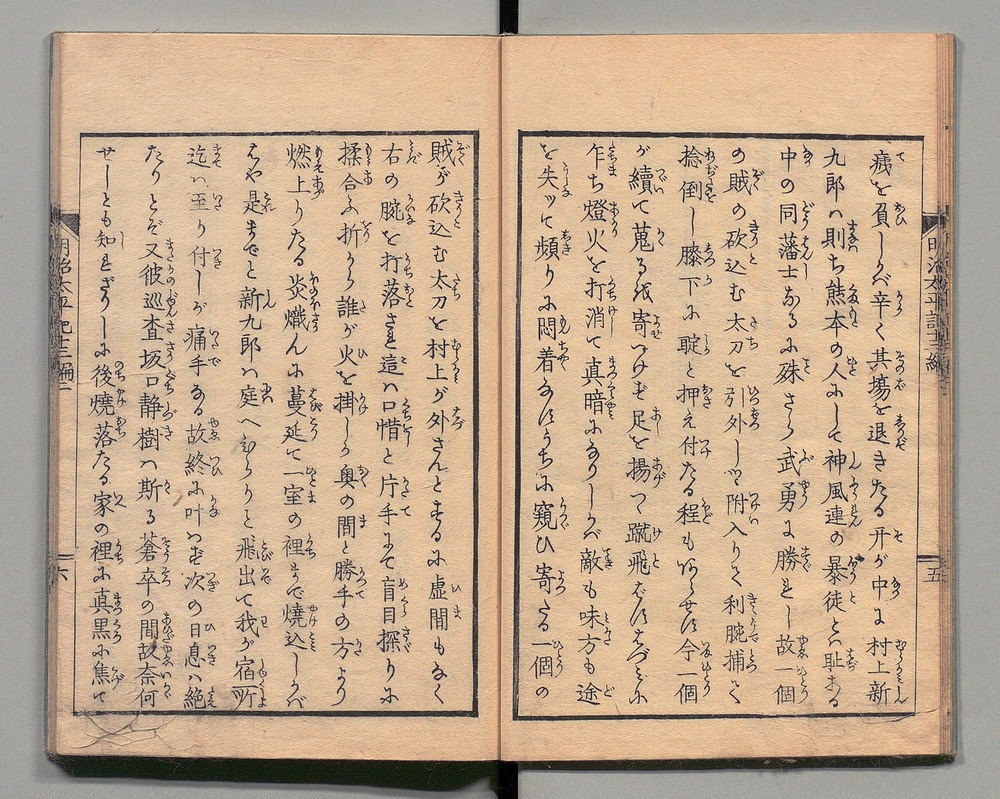 痍を負しかバ辛く其塲を退きたる开が中に村上新
九郎ハ則ち熊本の人にして神風連の暴徒とハ耻ある
中の同藩士なるに殊さら武勇に勝れし故一個
の賊の砍込む太刀を引外しつゝ附入りて利腕捕て
捻倒し膝下に聢と押え付たる程もあらせず今一個
が續て蒐るを寄つけず足を揚て蹴飛ばすはづみに
乍ち燈火を打消て真暗になりしかバ敵も味方も途
を失ツて頻りに悶着なすうちに窺ひ寄たる一個の
賊が砍込む太刀を村上が外さんとするに虚間もなく
右の腕を打落され這ハ口惜と片手にて盲目探りに
揉合ふ折から誰が火を掛しか奥の間と勝手の方より
燃上りたる炎熾んに蔓延て一室の裡まで焼込しかバ
はや是までと新九郎ハ庭へひらりと飛出て我が宿所
迄ハ至り付しが痛手なる故終に叶はず次の日息ハ絶
たりとぞ又彼巡査坂口静樹ハ斯る蒼卒の間故奈何
せしとも知れざりしに後焼落たる家の裡に真黒に焦て
明治太平記十二編
五
明治太平記十二編二
六